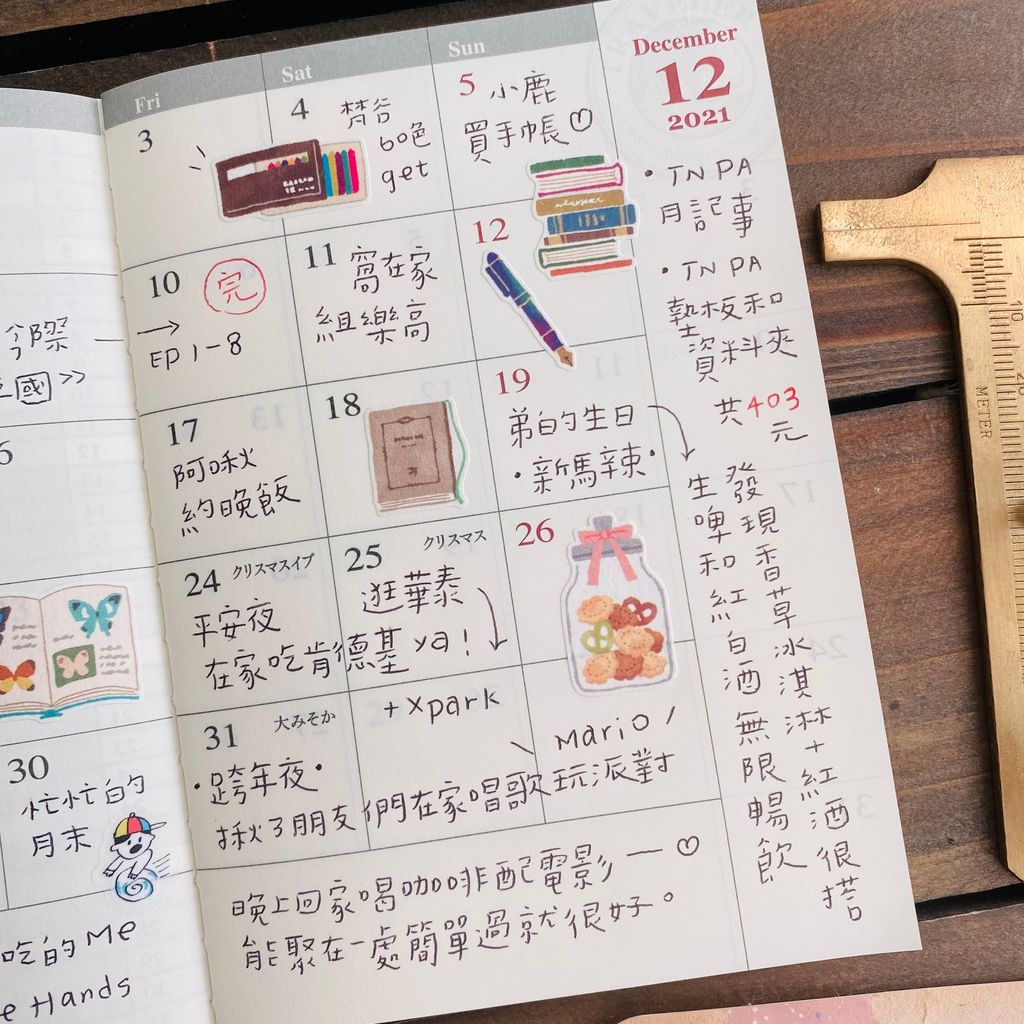 Fri
Sat
Sun
December
12
2021
3
4
梵谷
60色
get
5
小鹿
買手帳♡
10
完
→
EP 1-8
11
窩在家
組樂高
12
17
阿啾
約晚飯
18
19
弟的生日
·新馬辣·
24
クリスマスイブ
平安夜
在家吃肯德基 ya!
25
クリスマス
逛華泰
+Xpark
26
31
大みそか
·跨年夜·
揪了朋友們在家唱歌玩派對
Mario
晚上回家喝咖啡配電影 — ♡
能聚在一處簡單過就很好。
· TN PA
月記事
· TN PA
墊板和
資料夾
共403
元
發現香草冰淇淋+紅酒很搭
生啤和紅白酒無限暢飲
國 >>
30
忙忙的
月末
吃的 Me
Hands
METER